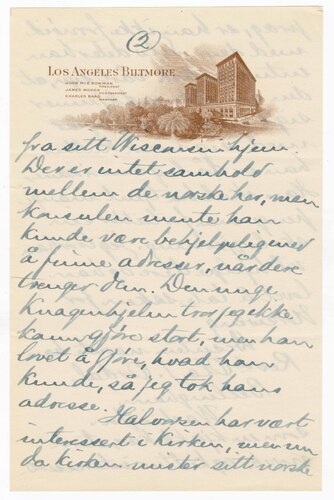 2
LOS ANGELES BILTMORE
JOHN McE. BOWMAN
PRESIDENT
JAMES WOODS
VICE PRESIDENT
CHARLES BAAD
MANAGER
fra sitt Wisconsinhjem.
Der er intet samhold
mellem de norske her, men
konsulen mente han
kunde være behjelpelig med
å finne adresser, når dere
trenger dem. Den unge
Knagenhjelm tror jeg ikke
kann gjøre stort, men han
lovet å gjøre, hvad han
kunde, så jeg tok hans
adresse.
Halvorsen har vært
interessert i Kirken, men nu
da kirken mister sitt norske